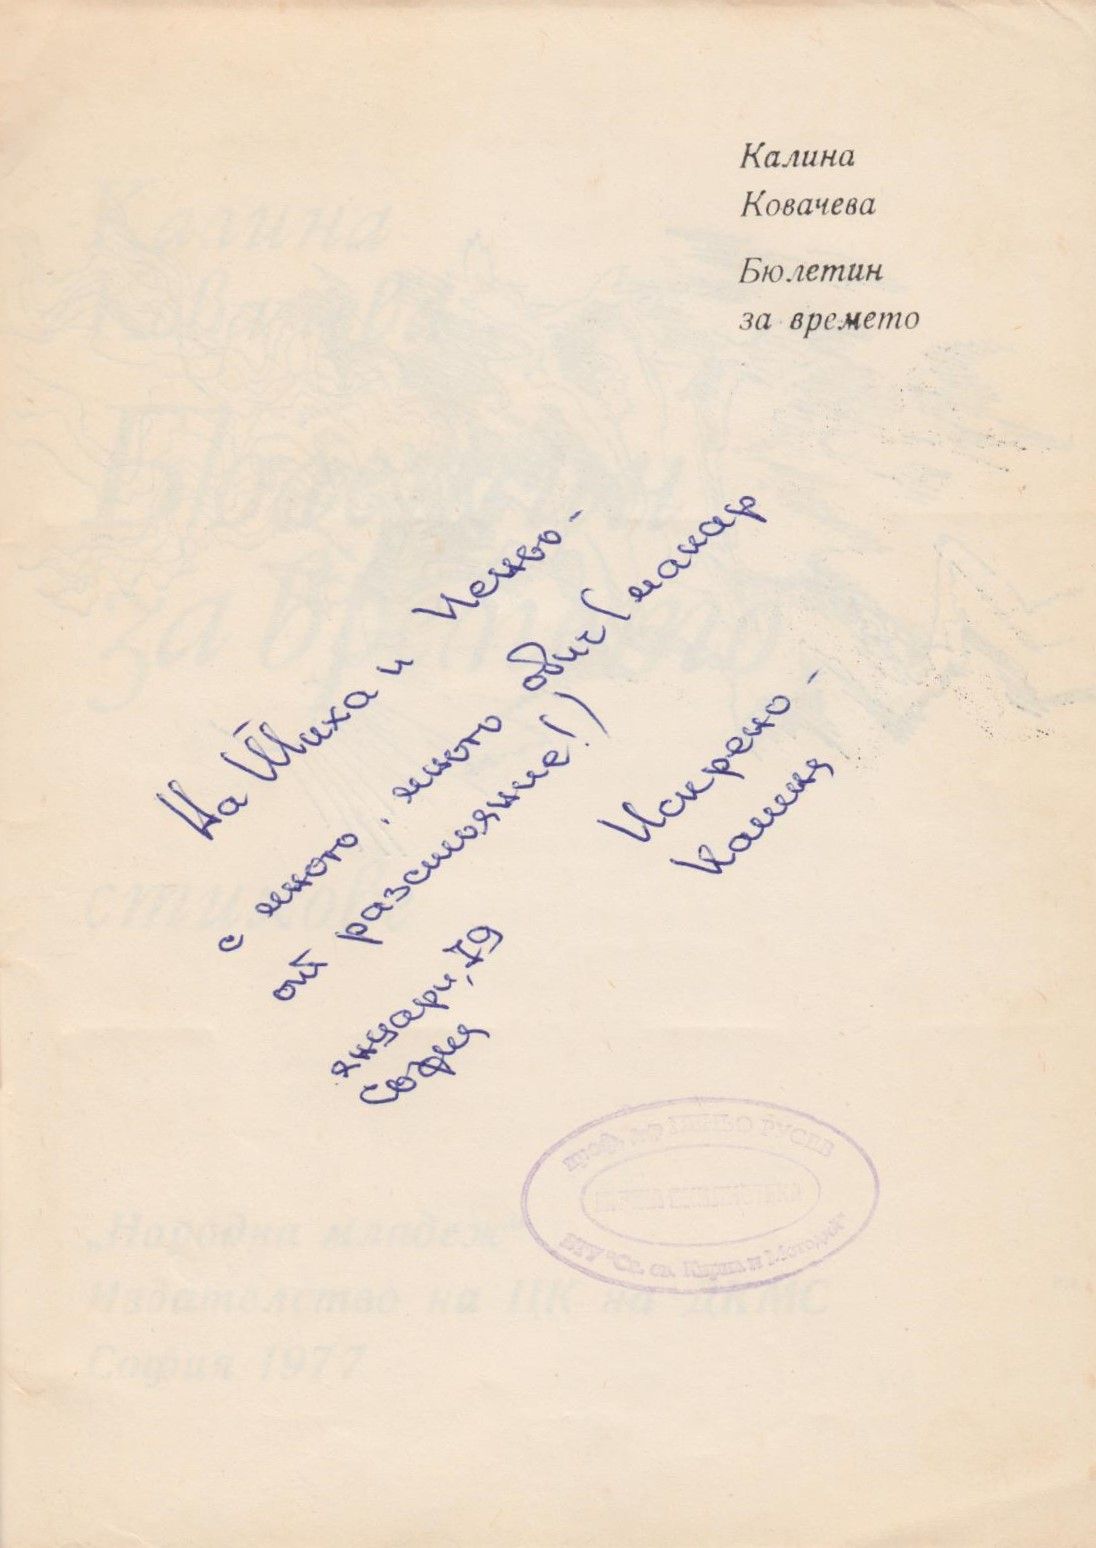 Калина
Ковачева
Бюлетин
за времето
На Тиха и Пеньо -
с много, много обич (макар
от разстояние!)
Искрено -
Калина
януари, 79
София
проф. д-р ПЕНЬО РУСЕВ
ЛИЧНА БИБЛИОТЕКА
ВТУ "Св. св. Кирил и Методий"
Калина
Ковачева
Бюлетин
за времето
стихове
„Народна младеж“
Издателство на ЦК на ДКМС
София 1977